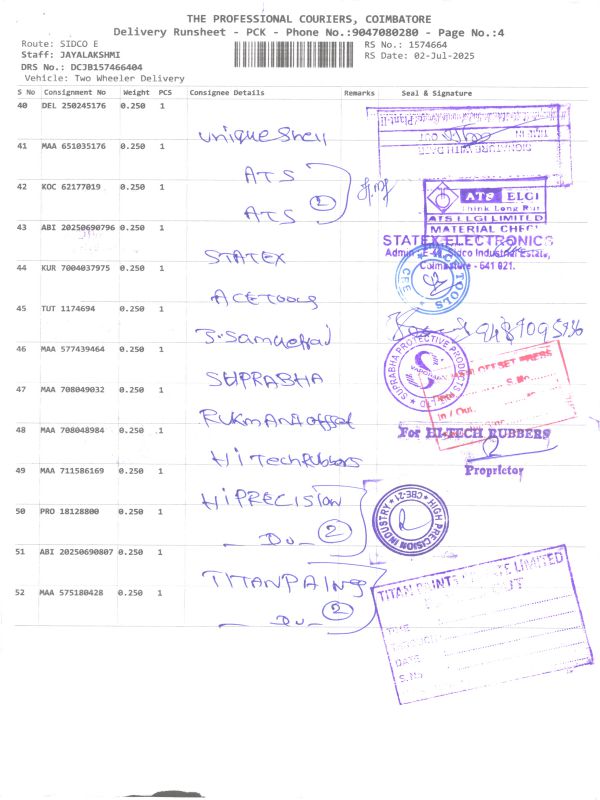 THE PROFESSIONAL COURIERS, COIMBATORE
Delivery Runsheet - PCK - Phone No.:9047080280 - Page No.:4
Route: SIDCO E
RS No.: 1574664
Staff: JAYALAKSHMI
RS Date: 02-Jul-2025
DRS No.: DCJB157466404
Vehicle: Two Wheeler Delivery
S No Consignment No Weight PCS Consignee Details Remarks Seal & Signature
40 DEL 250245176 0.250 1
unique shell
TIME IN OUT
SIGNATURE WITH DATE
41 MAA 651035176 0.250 1
ATS
42 KOC 62177019 0.250 1
ATS
2
ATS ELGI
Think Long Run
ATS ELGI LIMITED
MATERIAL CHEC
43 ABI 20250690796 0.250 1
STATEX
STATEX ELECTRONICS
Sidco Industrial Estate,
Coimbatore - 641 021.
44 KUR 7004037975 0.250 1
ACE Tools
ACE TOOLS
CBE
45 TUT 1174694 0.250 1
9487095936
46 MAA 577439464 0.250 1
SUPRABHA
SUPRABHA PROTECTIVE PRODUCTS
47 MAA 708049032 0.250 1
RUKMANI offset
OFFSET PRESS
S.No.
In / Out
48 MAA 708048984 0.250 1
Hi Tech Rubbers
For HI-TECH RUBBERS
Proprietor
49 MAA 711586169 0.250 1
HI PRECISION
50 PRO 18128800 0.250 1
Do 2
HIGH PRECISION INDUSTRY
CBE-21
51 ABI 20250690807 0.250 1
TITAN PAINTS
52 MAA 575180428 0.250 1
Do 2
TITAN PAINTS PRIVATE LIMITED
OUT
TIME
DATE
S.No